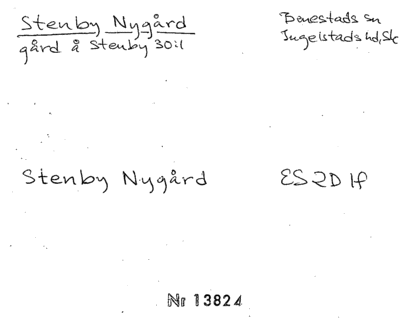 Stenby Nygård
gård å Stenby 30:1
Benestads sn
Ingelstads hd, Sk
Stenby Nygård
ES 2D 1f
Nr 13824